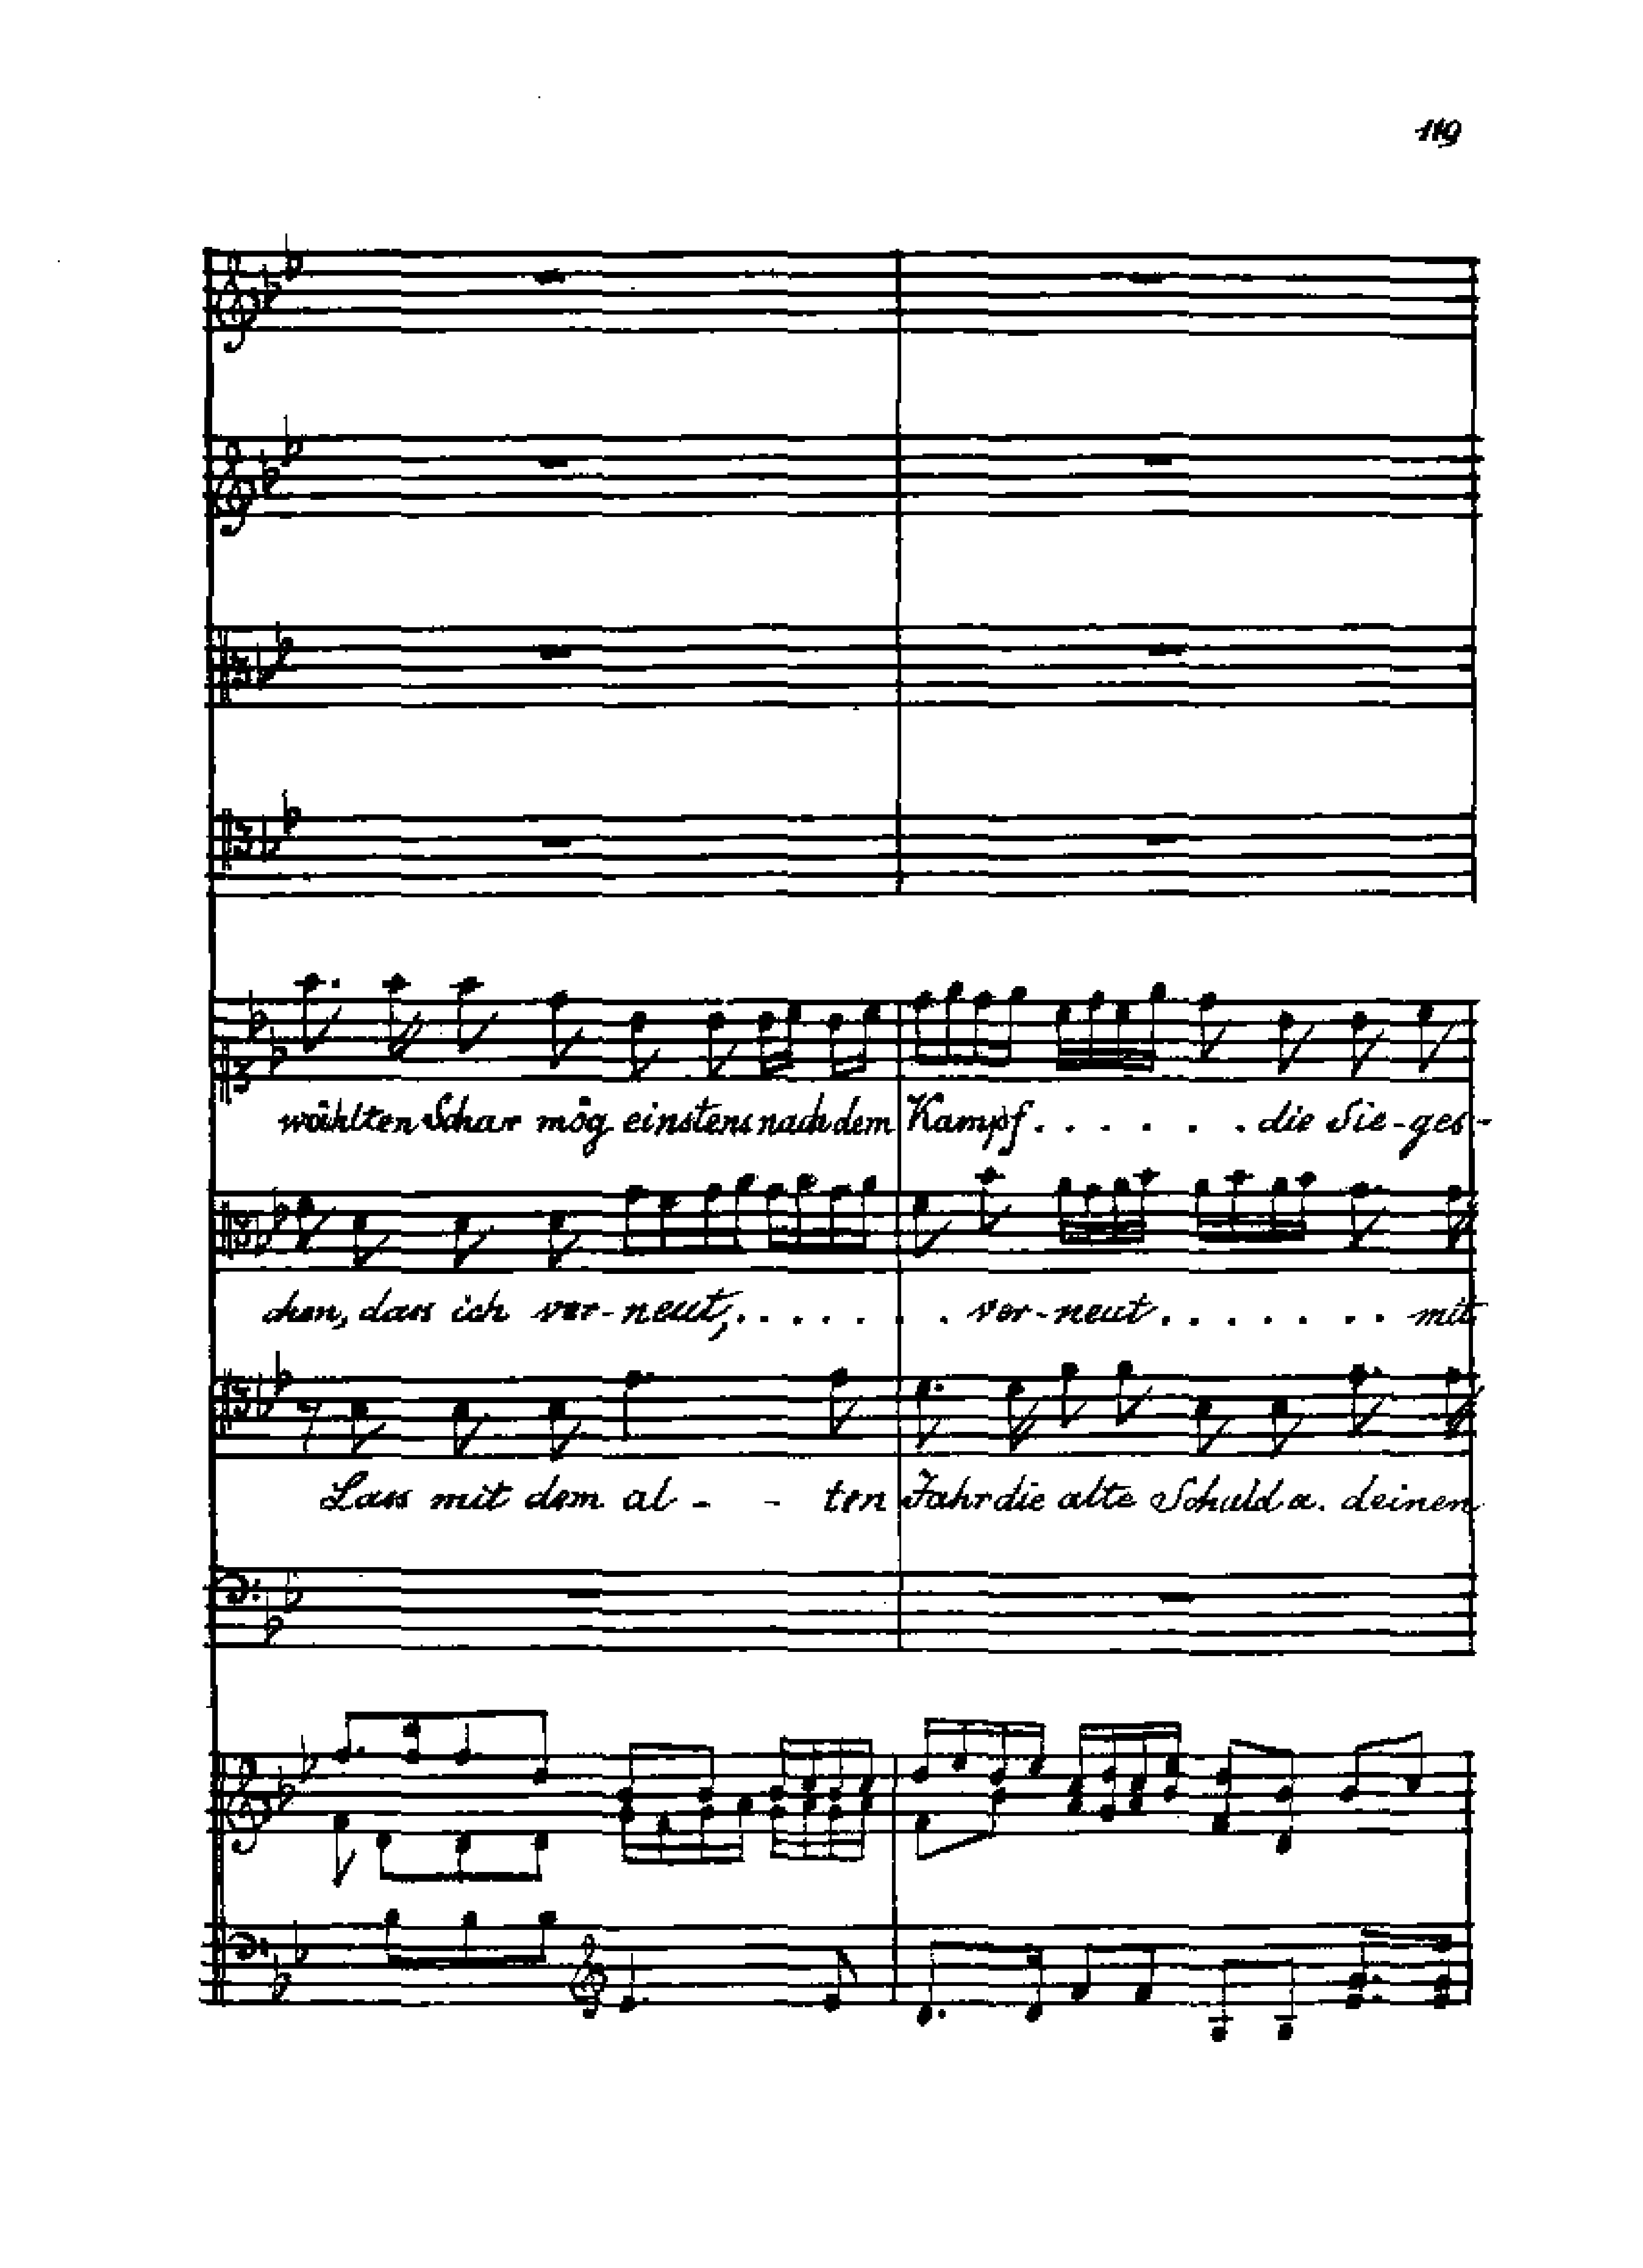 119
wählten Schar mög einstens nach dem Kampf . . . . . . die Sie-ges-
chen, dass ich ver-neut, . . . . . . ver-neut . . . . . . mit
Lass mit dem al - - ten Jahr die alte Schuld u. deinen